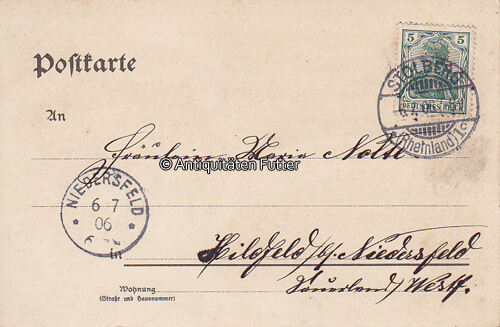 5 5
DEUTSCHES REICH
STOLBERG
(Rheinland) 1c
Postkarte
An
Fräulein Marie Nolte
© Antiquitäten Futter
NIEDERSFELD
6 7
06
in
Hildfeld b/ Niedersfeld
Sauerland / Westf.
Wohnung
(Straße und Hausnummer)